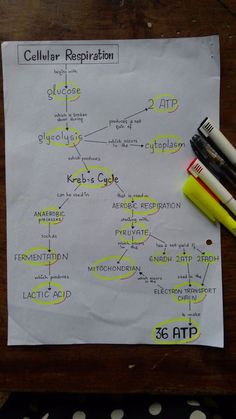 Cellular Respiration
begin with
glucose
which is broken
down during
produces a net
gain of
2 ATP
glycolysis
which occurs
in the
cytoplasm
which produces
Kreb-s Cycle
can be used in
that is used in
ANAEROBIC
processes
AEROBIC RESPIRATION
such as
starting with
PYRUVATE
which occurs
in the
has a net yield of
FERMENTATION
MITOCHONDRIAN
6 NADH 2 ATP 2 FADH
which produces
which
occurs
in the
used in the
LACTIC ACID
ELECTRON TRANSPORT
CHAIN
to make
36 ATP